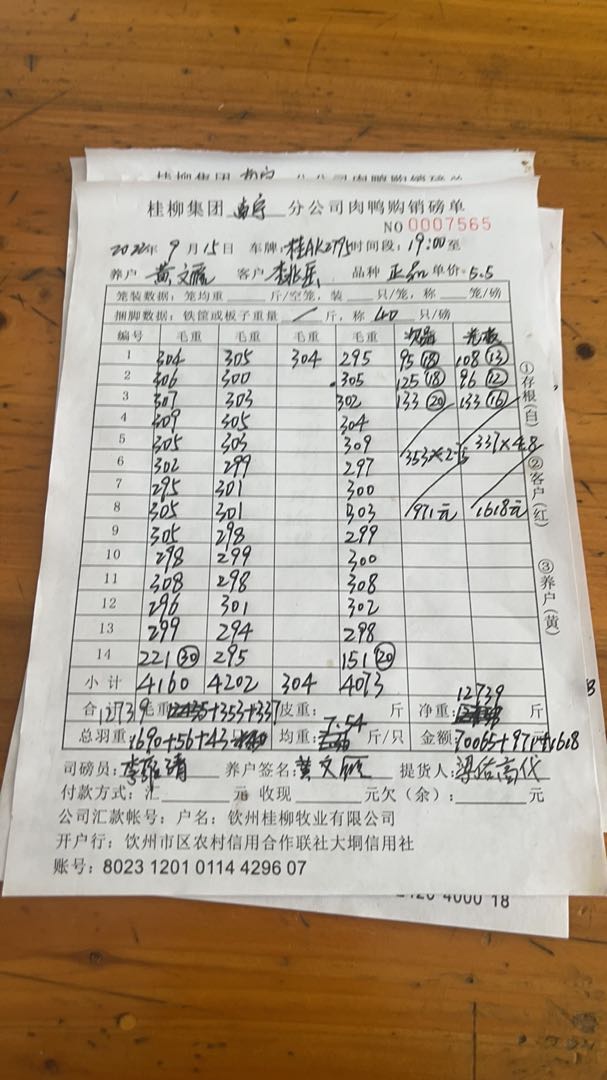 桂柳集团 南宁 分公司肉鸭购销磅单
桂柳集团 南宁 分公司肉鸭购销磅单
NO 0007565
2022年 9 月 15 日 车牌:桂AK2795 时间段:19:00至
养户 黄文雁 客户 品种 正品 单价 5.5
笼装数据:笼均重 斤/空笼,装 只/笼,称 笼/磅
捆脚数据:铁筐或板子重量 / 斤,称 40 只/磅
编号 毛重 毛重 毛重 毛重 次品 光板
1 304 305 304 295 95(18) 108(13)
2 306 300 305 125(18) 96(12)
3 307 303 302 133(20) 133(16)
4 309 305 304
5 305 303 309
6 302 299 297 353×2.75 337×4.8
7 295 301 300
8 305 301 303 971元 1618元
9 305 298 299
10 298 299 300
11 308 298 308
12 296 301 302
13 299 294 298
14 221(30) 295 151(20)
小计 4160 4202 304 4073
合 毛重 12739 +353+337 皮重: 斤 净重: 12739 斤
总羽重: 1690+56+43 均重: 7.54 斤/只 金额: 70065+971+1618
司磅员: 养户签名: 黄文雁 提货人:
付款方式:汇 元 收现 元欠(余): 元
公司汇款帐号:户名:钦州桂柳牧业有限公司
开户行:钦州市区农村信用合作联社大垌信用社
账号:8023 1201 0114 4296 07
①存根(白) ②客户(红) ③养户(黄)
4000 18